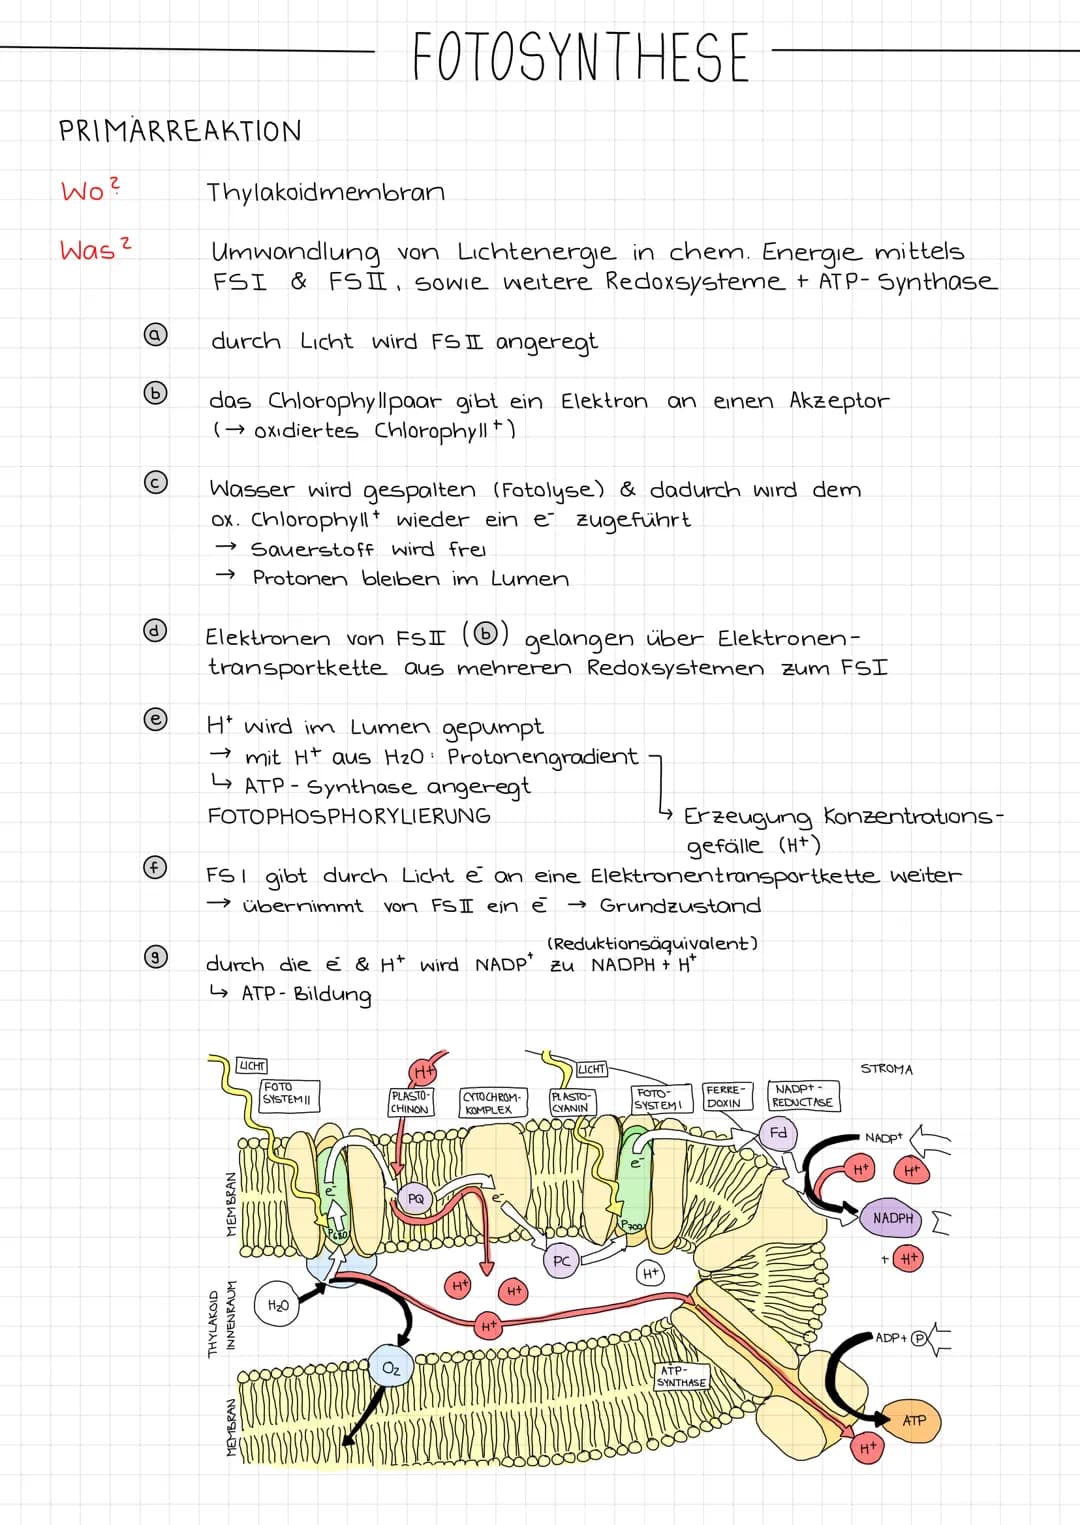 FOTOSYNTHESE
PRIMÄRREAKTION
Wo? Thylakoidmembran
Was? Umwandlung von Lichtenergie in chem. Energie mittels
FSI & FSII, sowie weitere Redoxsysteme + ATP-Synthase
a durch Licht wird FSII angeregt
b das Chlorophyllpaar gibt ein Elektron an einen Akzeptor
(→ oxidiertes Chlorophyll⁺)
c Wasser wird gespalten (Fotolyse) & dadurch wird dem
ox. Chlorophyll⁺ wieder ein e⁻ zugeführt
→ Sauerstoff wird frei
→ Protonen bleiben im Lumen
d Elektronen von FSII (b) gelangen über Elektronen-
transportkette aus mehreren Redoxsystemen zum FSI
e H⁺ wird im Lumen gepumpt
→ mit H⁺ aus H2O: Protonengradient
↳ ATP-Synthase angeregt
FOTOPHOSPHORYLIERUNG
↳ Erzeugung Konzentrations-
gefälle (H⁺)
f FSI gibt durch Licht e⁻ an eine Elektronentransportkette weiter
→ übernimmt von FSII ein e⁻ → Grundzustand
(Reduktionsäquivalent)
g durch die e⁻ & H⁺ wird NADP⁺ zu NADPH + H⁺
↳ ATP-Bildung
LICHT
FOTO
SYSTEM II
H+
PLASTO-
CHINON
CYTOCHROM-
KOMPLEX
LICHT
PLASTO-
CYANIN
FOTO-
SYSTEM I
FERRE-
DOXIN
NADP+-
REDUCTASE
STROMA
Fd
NADP+
H+
H+
e⁻
e⁻
e⁻
PQ
MEMBRAN
P680
P700
NADPH
PC
+ H+
H+
H+
H+
H2O
THYLAKOID
INNENRAUM
H+
ADP+ P
O2
ATP-
SYNTHASE
MEMBRAN
ATP
H+